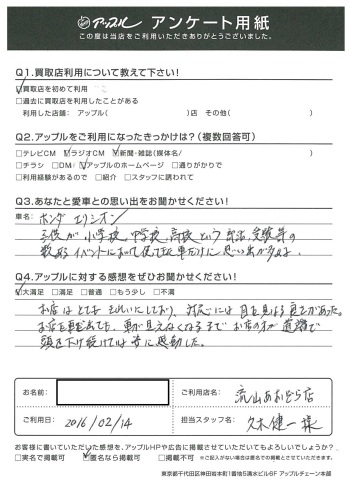 アップル アンケート用紙
この度は当店をご利用いただきありがとうございました。
Q1.買取店利用について教えて下さい!
☑買取店を初めて利用
□過去に買取店を利用したことがある
利用した店舗: アップル( )店 その他( )
Q2.アップルをご利用になったきっかけは?(複数回答可)
□テレビCM ☑ラジオCM ☑新聞・雑誌(媒体名/ )
□チラシ □DM ☑アップルのホームページ □通りがかりで
□利用経験があるので □紹介 □スタッフに誘われて
Q3.あなたと愛車との思い出をお聞かせください!
車名: ホンダ エリシオン
が、小学校、中学校、高校という 部活、受験等の
イベントにおいて 車だけに思い出が
Q4.アップルに対する感想をぜひお聞かせください!
☑大満足 □満足 □普通 □もう少し □不満
お店はとてもきれいにしており、対応には目を見はる良さがあった。
お店を出ても、車が見えなくなるまでお店の方が道路で
頭を下げ続けては常に感動した。
お名前:
ご利用店名: 流山あおぞら店
ご利用日: 2016/02/14
担当スタッフ名: 久木健一様
お客様に書いていただいた感想を、アップルHPや広告に掲載させていただいてもよろしいでしょうか?
□実名で掲載可 ☑匿名なら掲載可 □掲載不可 ※匿名の場合はご利用店名と地域のみ掲載させていただきます。
東京都千代田区神田岩本町1番地5清水ビル6F アップルチェーン本部